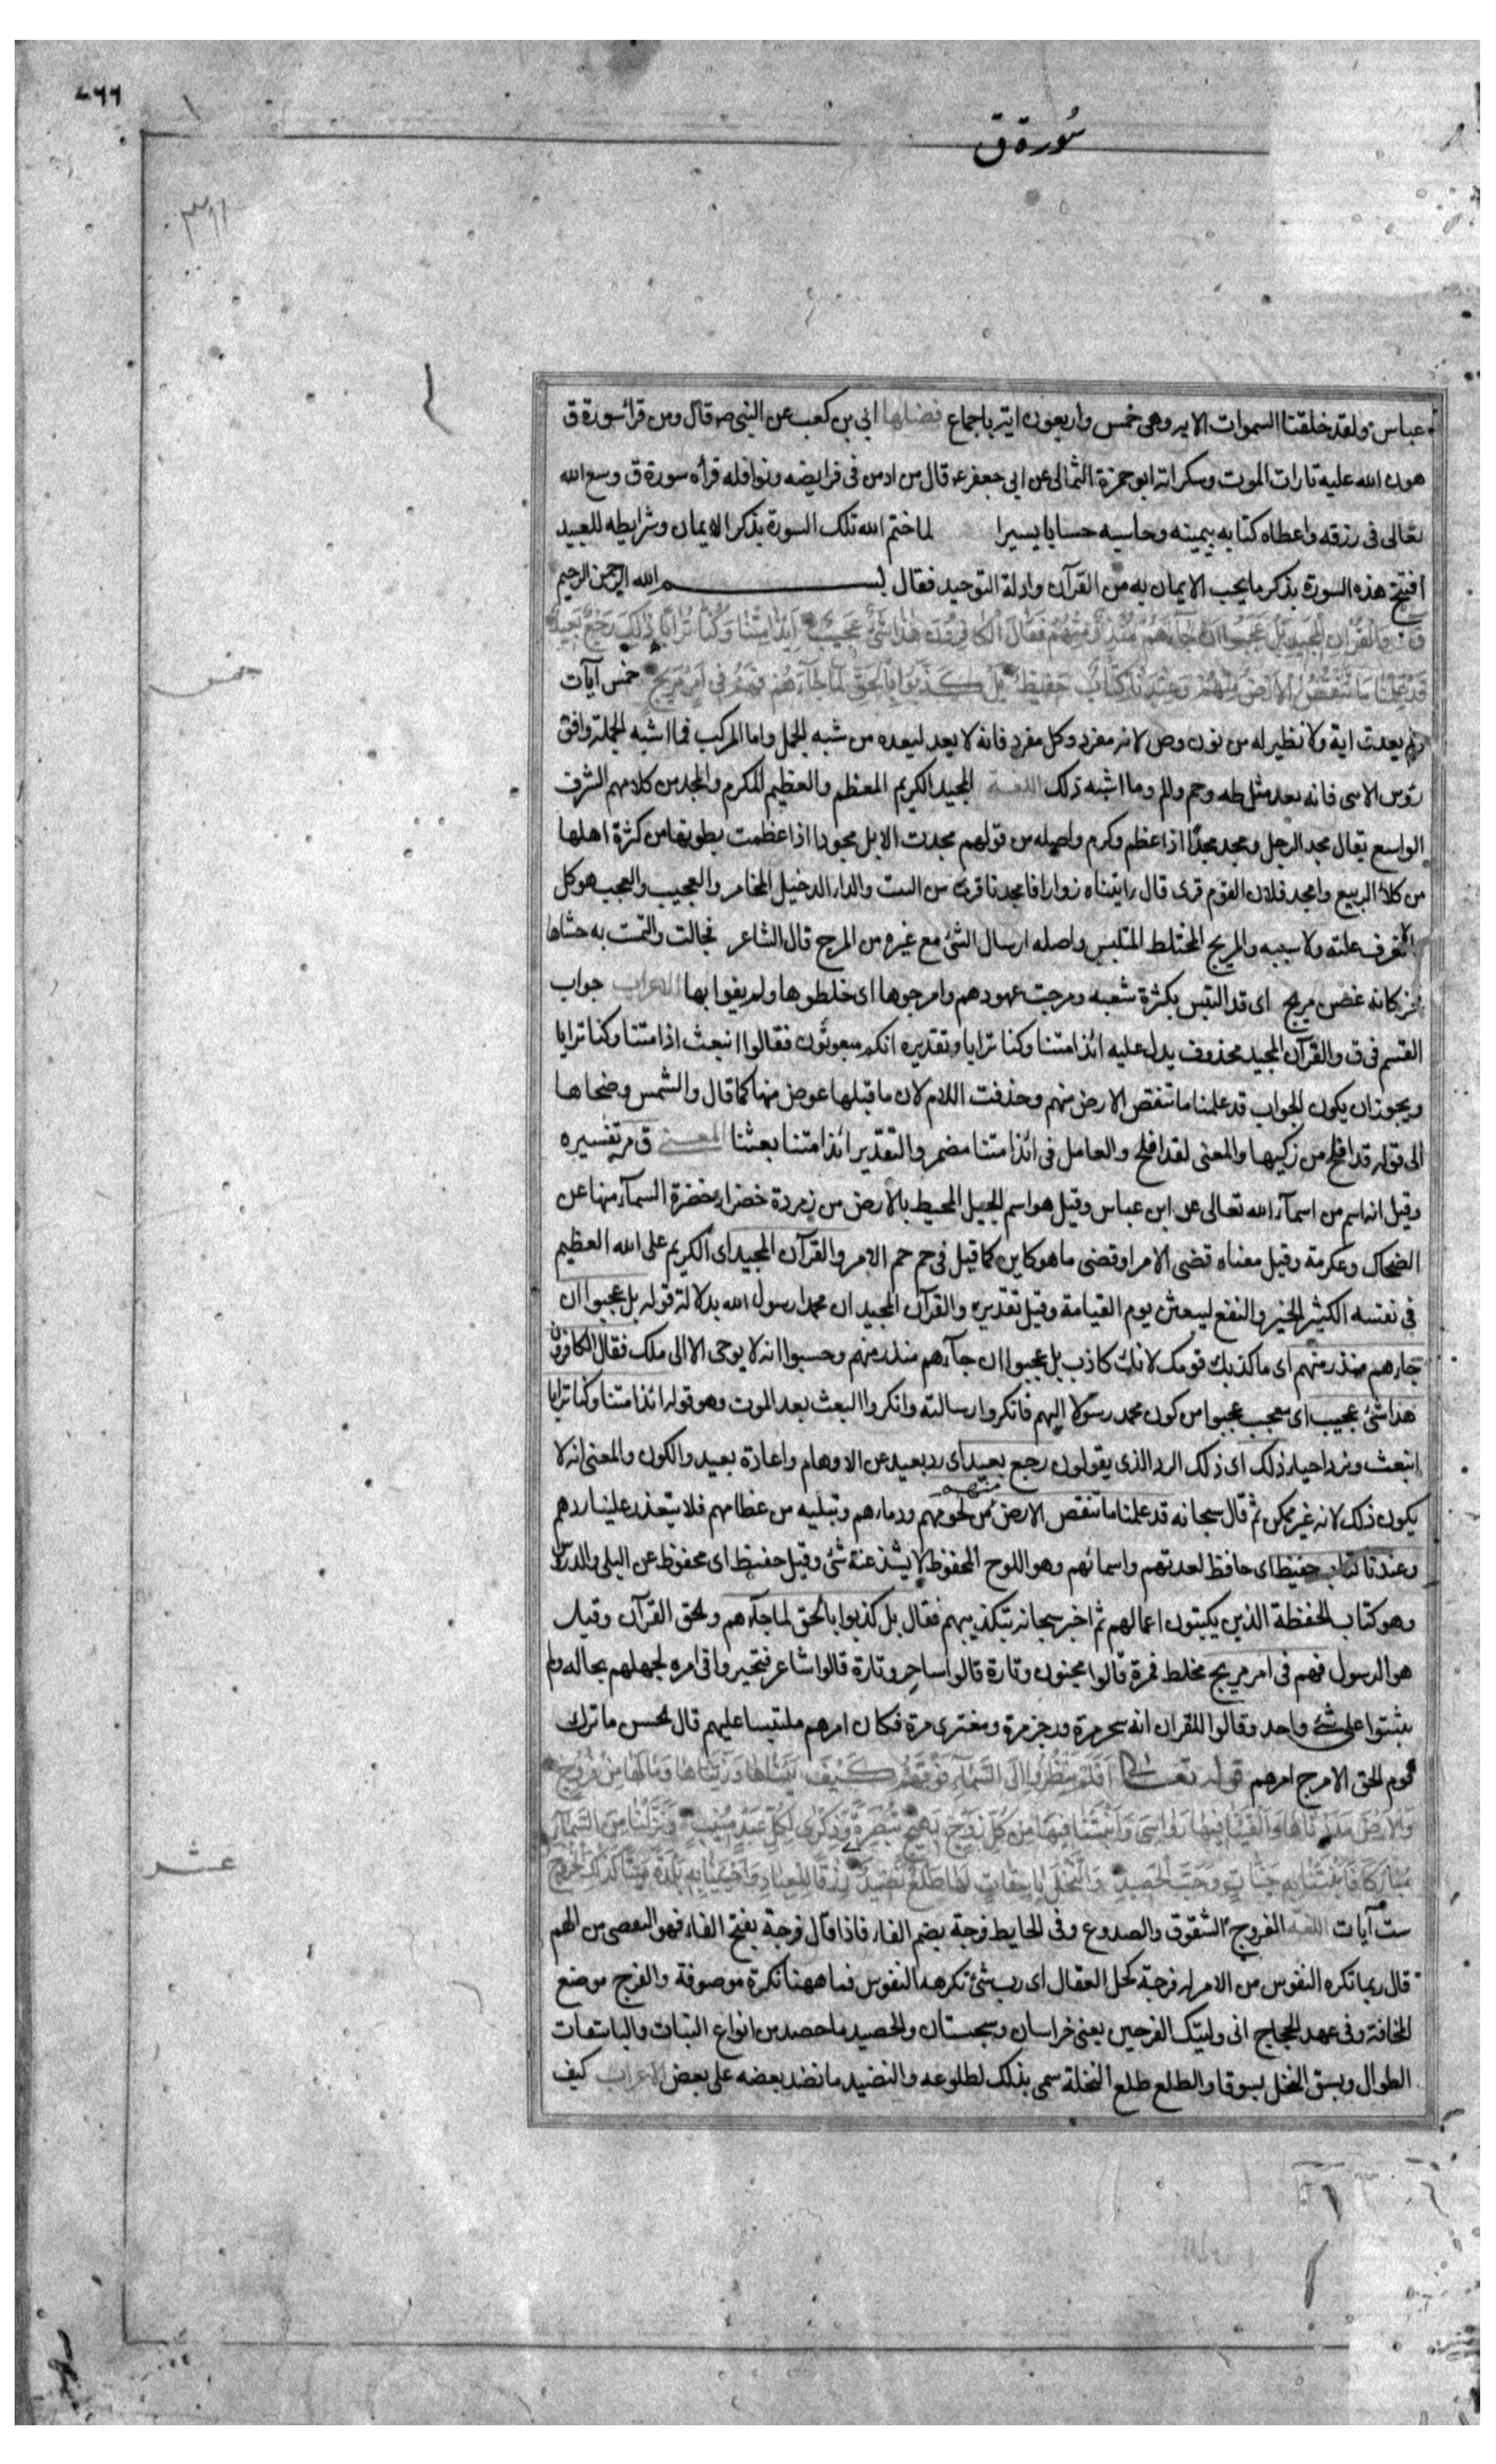 ٧٦٦
سورة ق
٣٩١
عباس ولقد خلقنا السموات الايه وهى خمس واربعون اية باجماع فضلها ابي بن كعب عن النبى ص قال ومن قرأ سورة ق
هون الله عليه تارات الموت وسكراته ابو حمزة الثمالى عن ابى جعفر ع قال من ادمن فى فرايضه ونوافله قرأه سورة ق وسع الله
تعالى فى رزقه واعطاه كتابه بيمينه وحاسبه حسابا يسيرا لما ختم الله تلك السورة بذكر الايمان وشرايطه للعبيد
افتتح هذه السورة بذكر ما يجب الايمان به من القرآن وادلة التوحيد فقال بسم الله الرحمن الرحيم
ق والقرآن المجيد بل عجبوا ان جاءهم منذر منهم فقال الكافرون هذا شئ عجيب ائذا متنا وكنا ترابا ذلك رجع بعيد
قد علمنا ما تنقص الارض منهم وعندنا كتاب حفيظ بل كذبوا بالحق لما جاءهم فهم فى امر مريج خمس آيات
خمس
ولم يعد ق اية ولا نظير له من نون وص لانه مفرد وكل مفرد فانه لا يعد لبعده من شبه الجمل واما المركب فما اشبه الجملة وافق
رؤس الاى فانه يعد مثل طه وحم والم وما اشبه ذلك اللغة المجيد الكريم المعظم والعظيم المكرم والمجد من كلامهم الشرف
الواسع يقال مجد الرجل ومجد مجدا اذا عظم وكرم واصله من قولهم مجدت الابل مجودا اذا عظمت بطونها من كثرة اهلها
من كلأ الربيع وامجد فلان القوم قرى قال راتيناه زوارا فامجدنا قرى من البث والدار الدخيل المخامر والعجيب والعجب هو كل
لا تعرف علته ولا سببه والمريج المختلط الملتبس واصله ارسال الشئ مع غيره من المرج قال الشاعر فجالت والتمت به حشاها
فخر كانه غصن مريج اى قد التبس بكثرة شعبه ومرجت عهودهم وامرجوها اى خلطوها ولم يفوا بها الاعراب جواب
القسم فى ق والقرآن المجيد محذوف يدل عليه ائذا متنا وكنا ترابا وتقديره انكم مبعوثون فقالوا انبعث اذا متنا وكنا ترابا
ويجوز ان يكون الجواب قد علمنا ما تنقص الارض منهم وحذفت اللام لان ما قبلها عوض منها كما قال والشمس وضحاها
الى قوله قد افلح من زكيها والمعنى لقد افلح والعامل فى ائذا متنا مضمر والتقدير ائذا متنا بعثنا المعنى ق مر تفسيره
وقيل انه اسم من اسمآء الله تعالى عن ابن عباس وقيل هو اسم الجبل المحيط بالارض من زمردة خضراء خضرة السمآء منها عن
الضحاك وعكرمة وقيل معناه قضى الامر او قضى ما هو كاين كما قيل فى حم حم الامر والقرآن المجيد اى الكريم على الله العظيم
فى نفسه الكثير الخير والنفع ليبعثن يوم القيامة وقيل تقديره والقرآن المجيد ان محمدا رسول الله بدلالة قوله بل عجبوا ان
جاءهم منذر منهم اى ما كذبك قومك لانك كاذب بل عجبوا ان جآءهم منذر منهم وحسبوا انه لا يوحى الا الى ملك فقال الكافرون
هذا شئ عجيب اى معجب عجبوا من كون محمد رسولا اليهم فانكروا رسالته وانكروا البعث بعد الموت وهو قوله ائذا متنا وكنا ترابا
انبعث ونرد احياء ذلك اى ذلك الرد الذى يقولون رجع بعيد اى رد بعيد عن الاوهام واعادة بعيد والكون والمعنى انه لا
يكون ذلك لانه غير ممكن ثم قال سبحانه قد علمنا ما تنقص الارض منهم من لحومهم ودمارهم وتبليه من عظامهم فلا يتعذر علينا ردهم
وعندنا كتاب حفيظ اى حافظ لعدتهم واسمائهم وهو اللوح المحفوظ لا يشذ عنه شئ وقيل حفيظ اى محفوظ عن البلى والدرس
وهو كتاب الحفظة الذين يكتبون اعمالهم ثم اخبر سبحانه بتكذيبهم فقال بل كذبوا بالحق لما جآءهم والحق القرآن وقيل
هو الرسول فهم فى امر مريج مختلط فمرة قالوا مجنون وتارة قالوا ساحر وتارة قالوا شاعر فتحيروا فى امره لجهلهم بحاله ولم
يثبتوا على شئ واحد وقالوا للقران انه سحر مرة ورجز مرة ومفترى مرة فكان امرهم ملتبسا عليهم قال الحسن ما ترك
قوم الحق الا مرج امرهم قوله تعالى افلم ينظروا الى السمآء فوقهم كيف بنيناها وزيناها وما لها من فروج
والارض مددناها والقينا فيها رواسى وانبتنا فيها من كل زوج بهيج تبصرة وذكرى لكل عبد منيب ونزلنا من السمآء
مباركا فانبتنا به جنات وحب الحصيد والنخل باسقات لها طلع نضيد رزقا للعباد واحيينا به بلدة ميتا كذلك الخروج
عشر
ست آيات اللغة الفروج الشقوق والصدوع وفى الحايط فرجة بضم الفاء فاذا قال فرجة بفتح الفاء فهو التفصى من الهم
قال ربما تكره النفوس من الامر له فرجة كحل العقال اى رب شئ تكرهه النفوس فما ههنا نكرة موصوفة والفرج موضع
المخافة وفى عهد الحجاج انى وليتك الفرجين يعنى خراسان وسجستان والحصيد ما حصد من انواع النبات والباسقات
الطوال وبسق النخل بسوقا والطلع طلع النخلة سمى بذلك لطلوعه والنضيد ما نضد بعضه على بعض الاعراب كيف